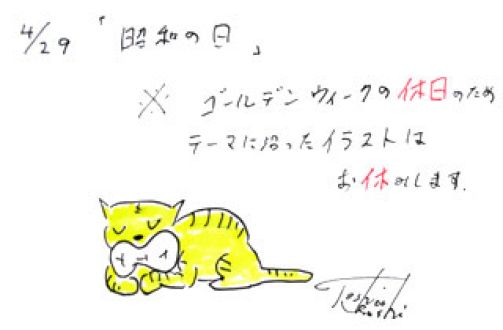 4/29 「昭和の日」
※ ゴールデンウィークの休日のため
テーマに沿ったイラストは
お休みします.